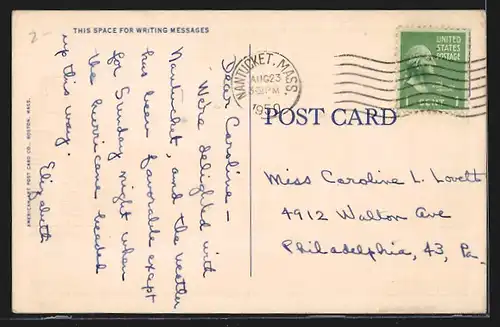 2-
THIS SPACE FOR WRITING MESSAGES
Dear Caroline -
We're delighted with
Nantucket, and the weather
has been favorable exept
for Sunday night when
the hurricane headed
up this way.
Elizabeth
POST CARD CO., BOSTON, MASS.
NANTUCKET, MASS.
AUG 23
PM
1950
UNITED
STATES
POSTAGE
1 CENT 1
POST CARD
Miss Caroline L. Lovett
4912 Walton Ave
Philadelphia, 43, Pa-